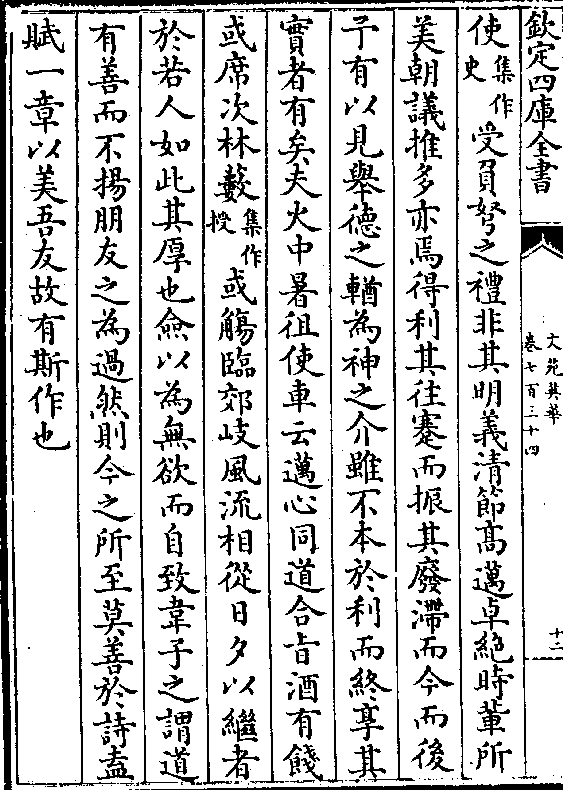 欽定四庫全書
文苑英華
卷七百三十四
十二
使集作史受負弩之禮非其明義清節髙邁卓絶時輩所
美朝議推多亦焉得利其往蹇而振其廢滯而今而後
予有以見舉德之輶為神之介雖不本於利而終享其
實者有矣夫火中暑徂使車云邁心同道合㫖酒有餞
或席次林藪集作授或觴臨郊岐風流相從日夕以繼者
於若人如此其厚也僉以為無欲而自致韋子之謂道
有善而不揚朋友之為過然則今之所至莫善於詩盍
賦一章以美吾友故有斯作也